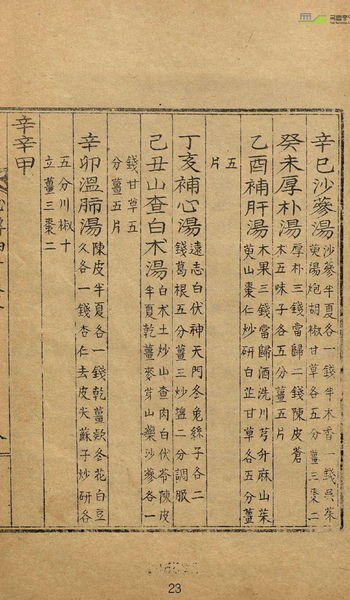 辛巳沙蔘湯沙蔘半夏各一錢半木香一錢吳茱
萸湯炮胡椒甘草各五分薑三棗二
癸未厚朴湯厚朴三錢當歸二錢陳皮蒼
木五味子各五分薑五片
乙酉補肝湯木果三錢當歸酒洗川芎升麻山茱
萸山棗仁炒研白芷甘草各五分薑
五
片
丁亥補心湯遠志白伏神天門冬兔絲子各二
錢葛根五分薑三炒鹽二分調服
己丑山查白木湯白木土炒山查肉白伏苓陳皮
半夏乾薑麥芽山藥沙蔘各一
錢甘草五
分薑五片
辛卯溫肺湯陳皮半夏各一錢乾薑款冬花白豆
久各一錢杏仁去皮尖蘇子炒研各
五分川椒十
立薑三棗二
辛辛甲
23